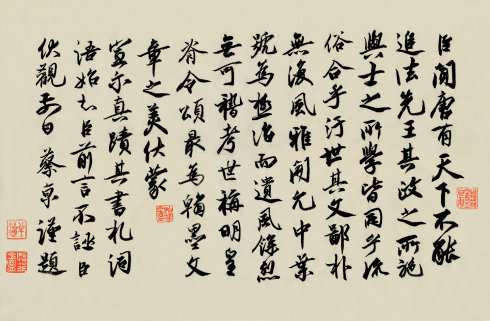 臣聞唐有天下不能
追法先王其政之所施
與士之所學皆同乎流
俗合乎汙世其文鄙朴
無復風雅開元中葉
號為極治而遺風餘烈
無可稽考世稱明皇
脊令頌最為翰墨文
章之美伏蒙
宣示真蹟其書札詞
語始知臣前言不誣臣
伏觀日蔡京謹題